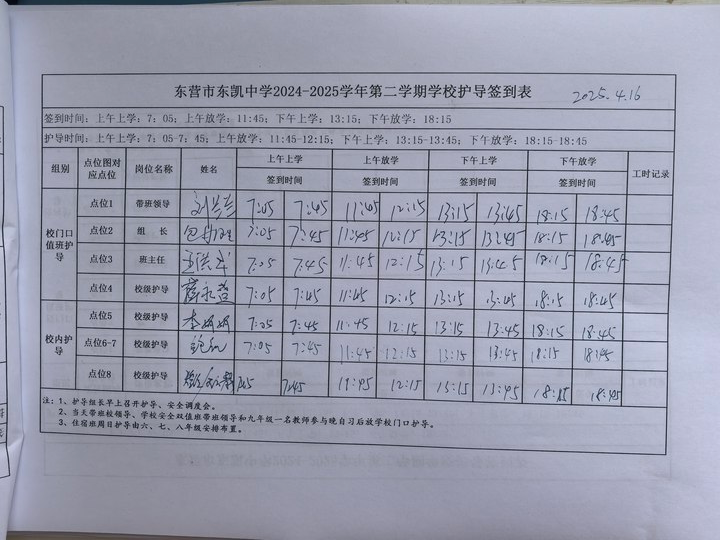 东营市东凯中学2024-2025学年第二学期学校护导签到表 2025.4.16
签到时间：上午上学：7：05；上午放学：11：45；下午上学：13：15；下午放学：18：15
护导时间：上午上学：7：05-7：45；上午放学：11:45-12:15；下午上学：13:15-13:45；下午放学：18:15-18:45
组别 点位图对应点位 岗位名称 姓名 上午上学 上午放学 下午上学 下午放学 工时记录
签到时间 签到时间 签到时间 签到时间
校门口值班护导
点位1 带班领导 7:05 7:45 11:45 12:15 13:15 13:45 18:15 18:45
点位2 组 长 7:05 7:45 11:45 12:15 13:15 13:45 18:15 18:45
点位3 班主任 7:05 7:45 11:45 12:15 13:15 13:45 18:15 18:45
点位4 校级护导 7:05 7:45 11:45 12:15 13:15 13:45 18:15 18:45
校内护导
点位5 校级护导 李娟娟 7:05 7:45 11:45 12:15 13:15 13:45 18:15 18:45
点位6-7 校级护导 7:05 7:45 11:45 12:15 13:15 13:45 18:15 18:45
点位8 校级护导 7:05 7:45 11:45 12:15 13:15 13:45 18:15 18:45
注：1、护导组长早上召开护导、安全调度会。
2、当天带班校领导、学校安全双值班带班领导和九年级一名教师参与晚自习后放学校门口护导。
3、住宿班周日护导由六、七、八年级安排布置。